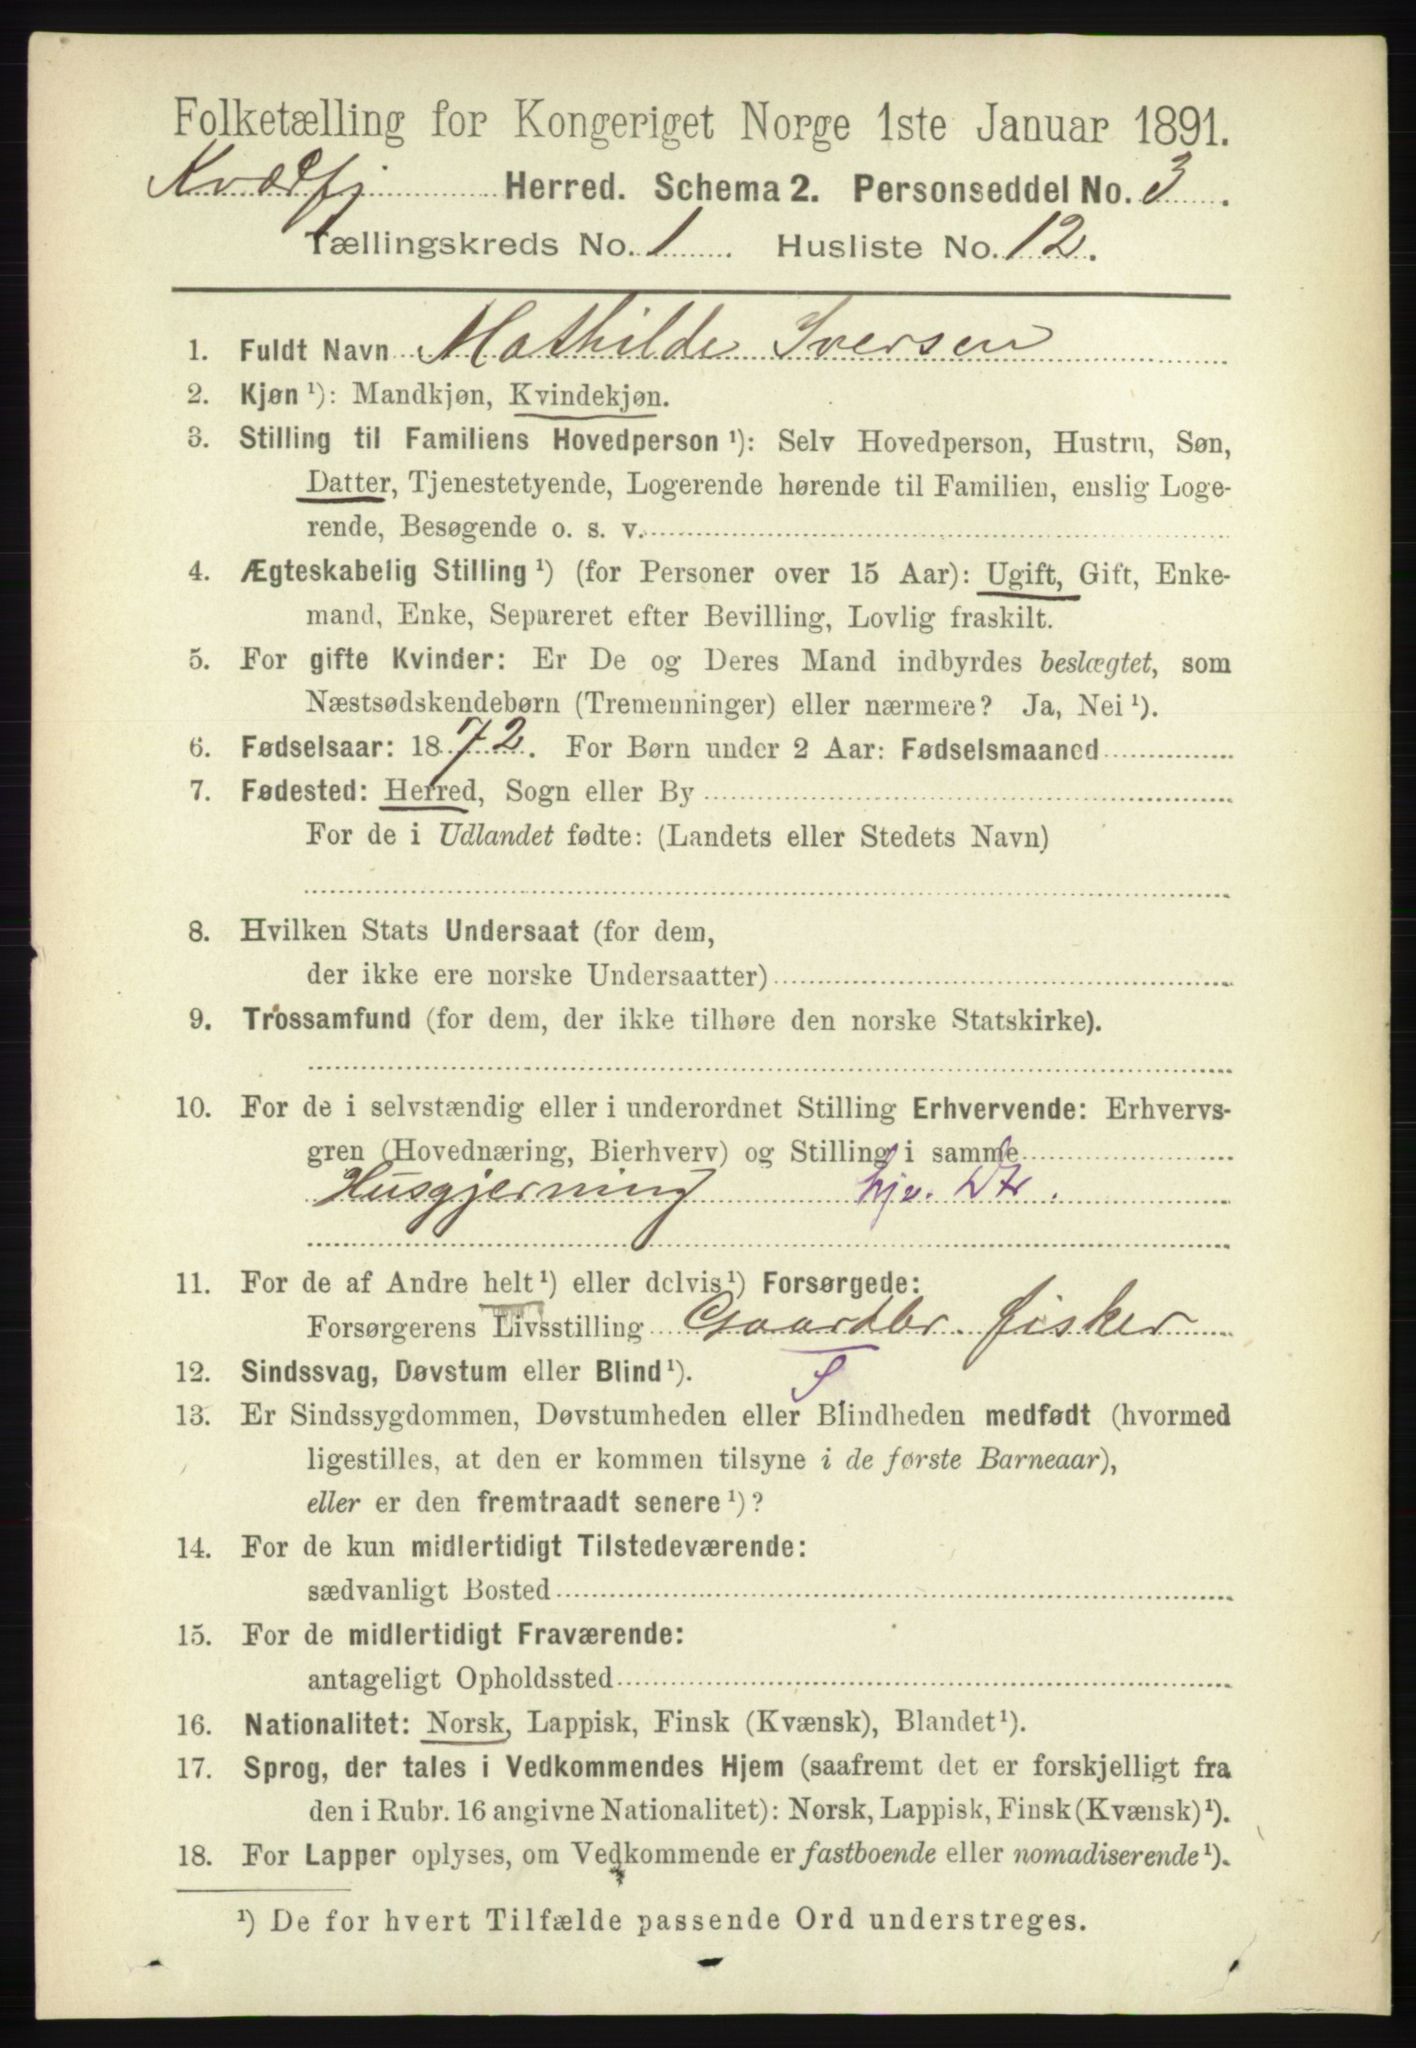 Folketælling for Kongeriget Norge 1ste Januar 1891.
Kvædfj Herred. Schema 2. Personseddel No. 3.
Tællingskreds No. 1. Husliste No. 12.
1. Fuldt Navn Mathilde Iversen
2. Kjøn ¹): Mandkjøn, Kvindekjøn.
3. Stilling til Familiens Hovedperson ¹): Selv Hovedperson, Hustru, Søn,
Datter, Tjenestetyende, Logerende hørende til Familien, enslig Loge-
rende, Besøgende o. s. v.
4. Ægteskabelig Stilling ¹) (for Personer over 15 Aar): Ugift, Gift, Enke-
mand, Enke, Separeret efter Bevilling, Lovlig fraskilt.
5. For gifte Kvinder: Er De og Deres Mand indbyrdes beslægtet, som
Næstsødskendebørn (Tremenninger) eller nærmere? Ja, Nei ¹).
6. Fødselsaar: 1872. For Børn under 2 Aar: Fødselsmaaned
7. Fødested: Herred, Sogn eller By
For de i Udlandet fødte: (Landets eller Stedets Navn)
8. Hvilken Stats Undersaat (for dem,
der ikke ere norske Undersaatter)
9. Trossamfund (for dem, der ikke tilhøre den norske Statskirke).
10. For de i selvstændig eller i underordnet Stilling Erhvervende: Erhvervs-
gren (Hovednæring, Bierhverv) og Stilling i samme
Husgjerning hjv. Dtr.
11. For de af Andre helt ¹) eller delvis ¹) Forsørgede:
Forsørgerens Livsstilling Gaardbr. fisker
12. Sindssvag, Døvstum eller Blind ¹). F
13. Er Sindssygdommen, Døvstumheden eller Blindheden medfødt (hvormed
ligestilles, at den er kommen tilsyne i de første Barneaar),
eller er den fremtraadt senere ¹)?
14. For de kun midlertidigt Tilstedeværende:
sædvanligt Bosted
15. For de midlertidigt Fraværende:
antageligt Opholdssted
16. Nationalitet: Norsk, Lappisk, Finsk (Kvænsk), Blandet ¹).
17. Sprog, der tales i Vedkommendes Hjem (saafremt det er forskjelligt fra
den i Rubr. 16 angivne Nationalitet): Norsk, Lappisk, Finsk (Kvænsk) ¹).
18. For Lapper oplyses, om Vedkommende er fastboende eller nomadiserende ¹).
¹) De for hvert Tilfælde passende Ord understreges.